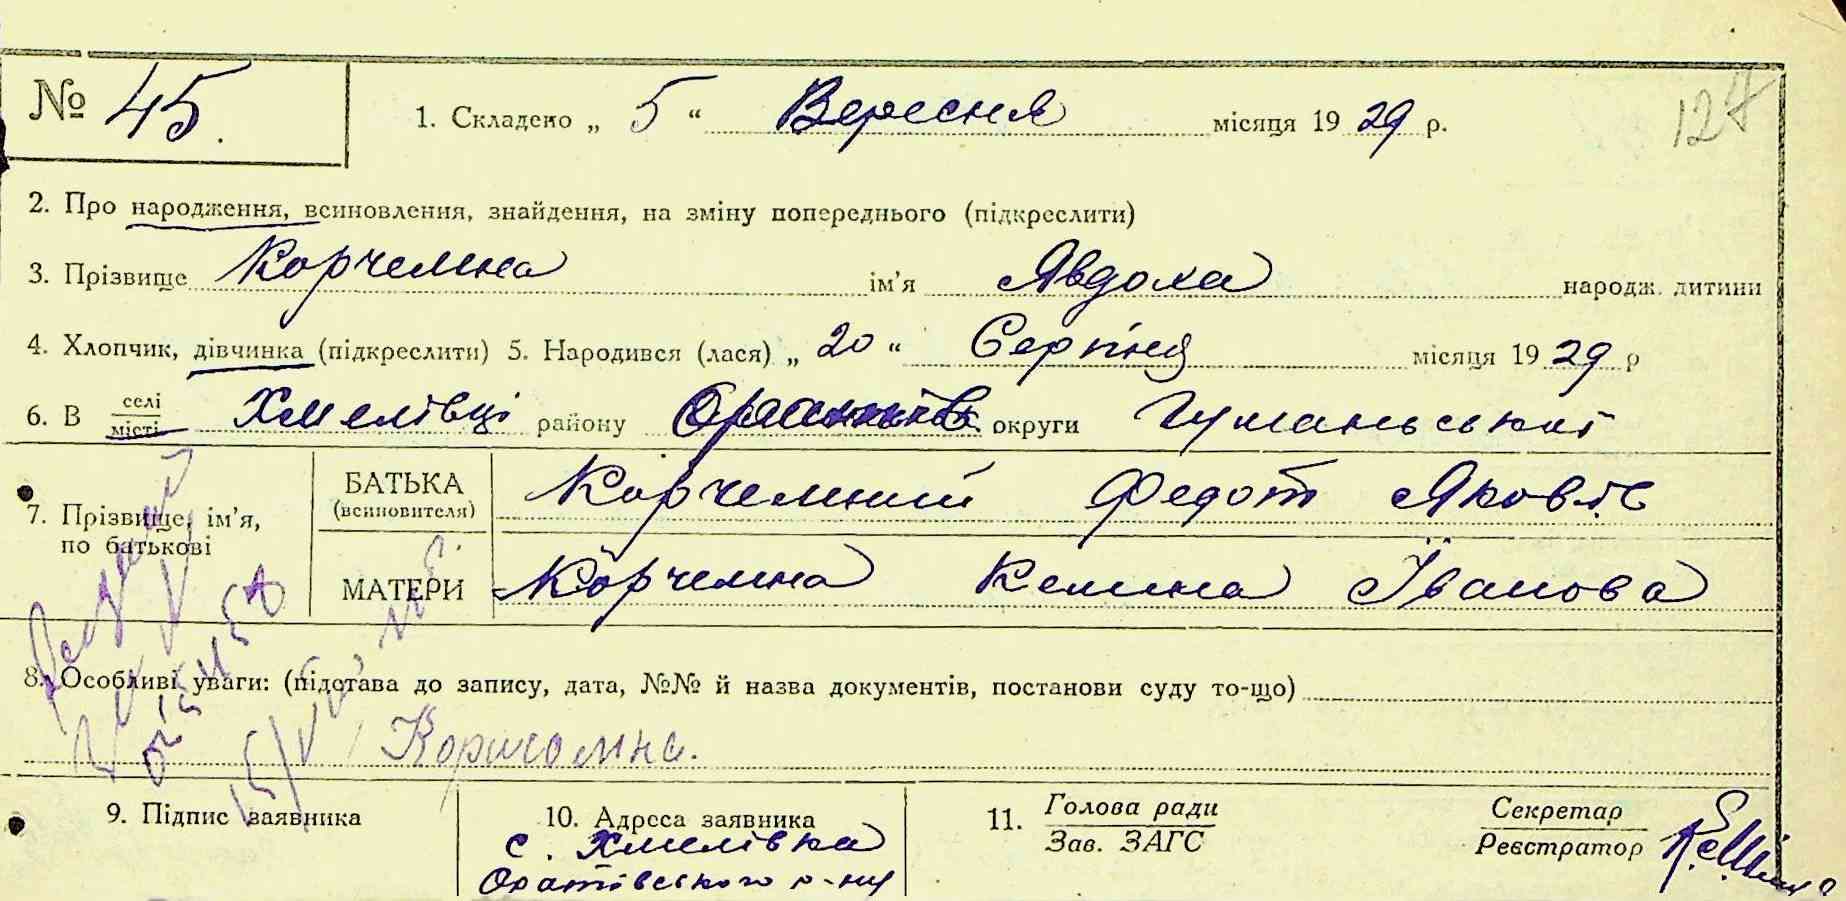 № 45.
1. Складено „ 5 “ Вересня місяця 1929 р.
127
2. Про народження, всиновлення, знайдення, на зміну попереднього (підкреслити)
3. Прізвище Корчемна ім'я Явдоха народж. дитини
4. Хлопчик, дівчинка (підкреслити) 5. Народився (лася) „ 20 “ Серпня місяця 1929 р
6. В селі / місті Хмелівці району округи Гуманської
7. Прізвище, ім'я, по батькові
БАТЬКА (всиновителя) Корчемний Федот Яковлів
МАТЕРИ Корчемна Келина Іванова
8. Особливі уваги: (підстава до запису, дата, №№ й назва документів, постанови суду то-що)
9. Підпис заявника
10. Адреса заявника
с. Хмелівка
Оратівського р-ну
11. Голова ради
Зав. ЗАГС
Секретар
Реєстратор